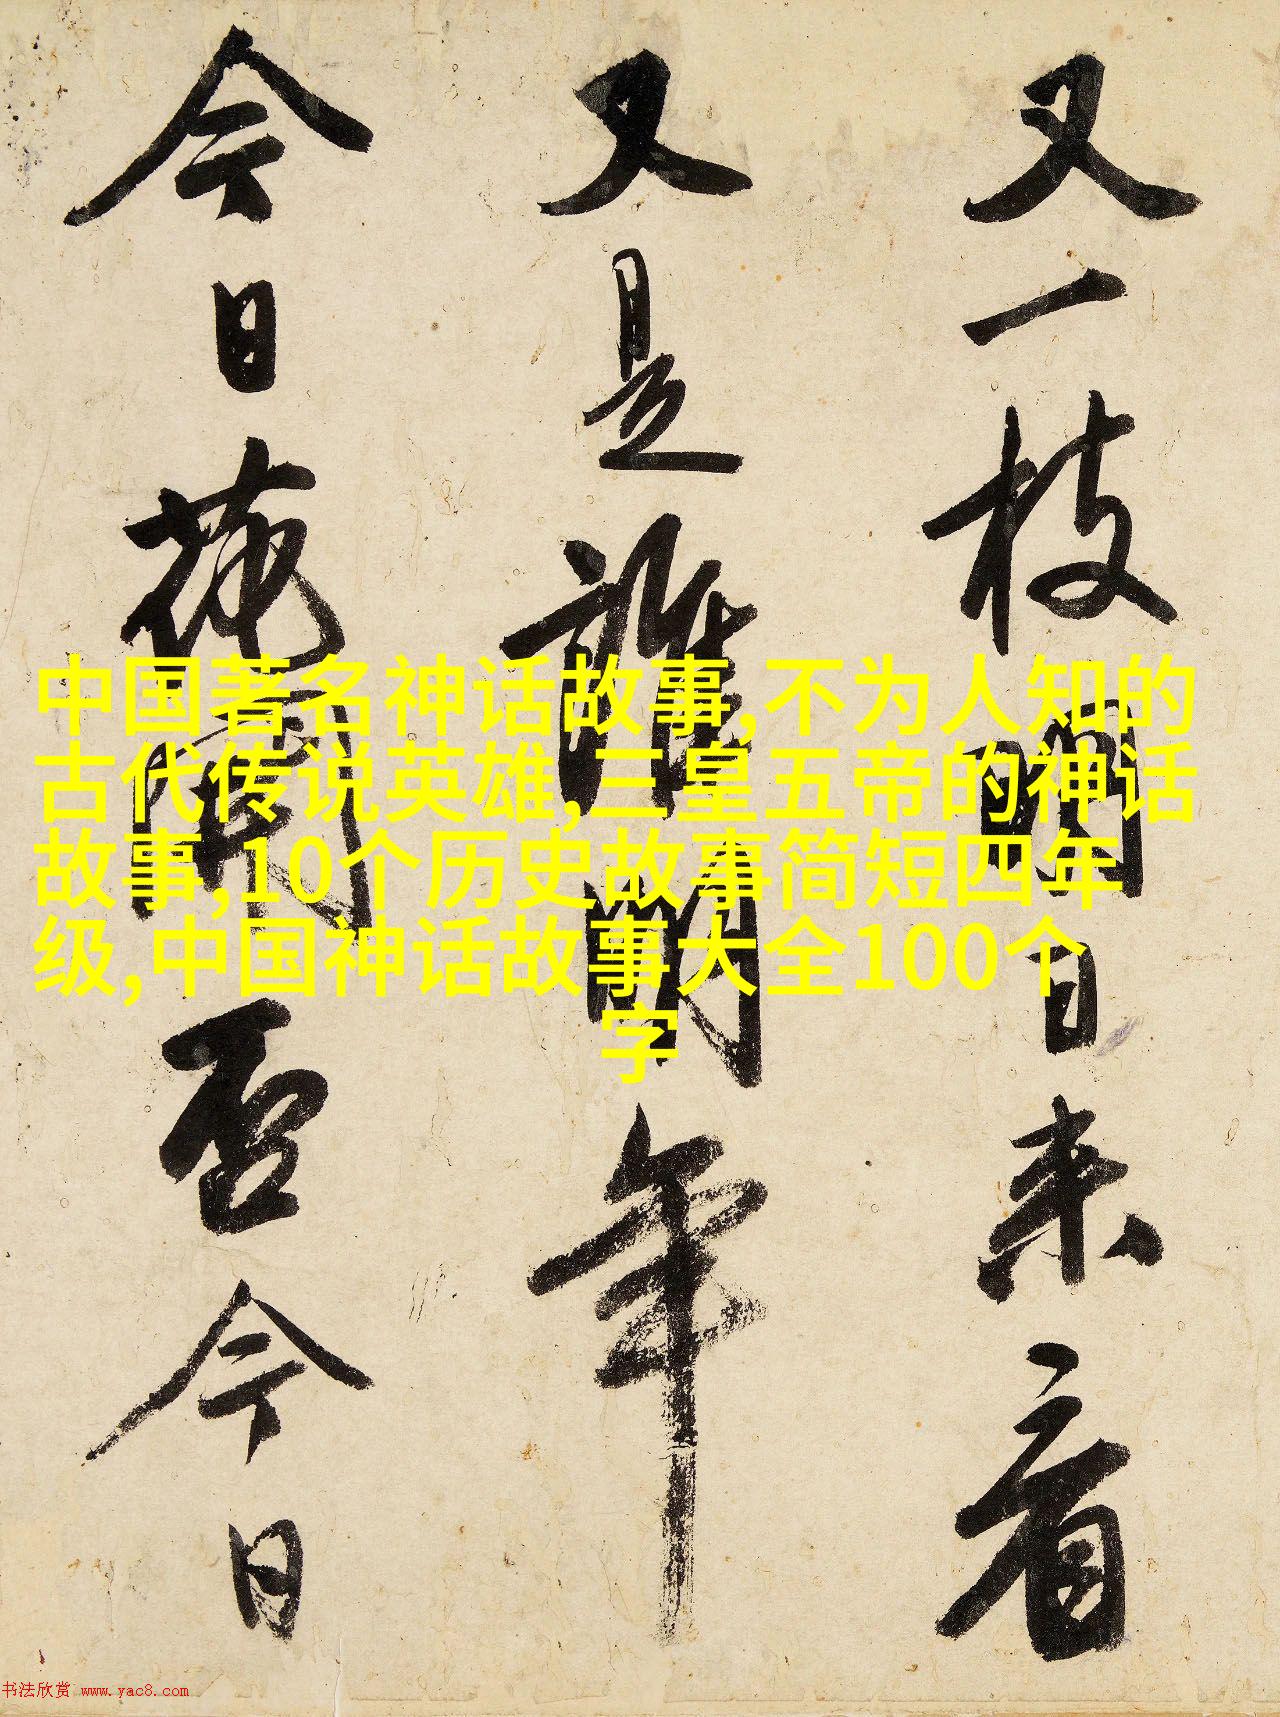 又一枝明日来看
又是誰明年
今日花開否今日
中国著名神话故事,不为人知的
古代传说英雄,三皇五帝的神话
故事,10个历史故事简短四年
级,中国神话故事大全100个
字
书法欣赏 www.yac8.com